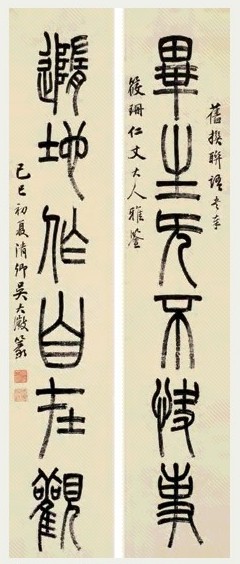 舊撰聯語書奉
畢生无不快事
筱珊仁丈大人雅鑒
隨地作自在觀
己巳初夏清卿吳大澂篆